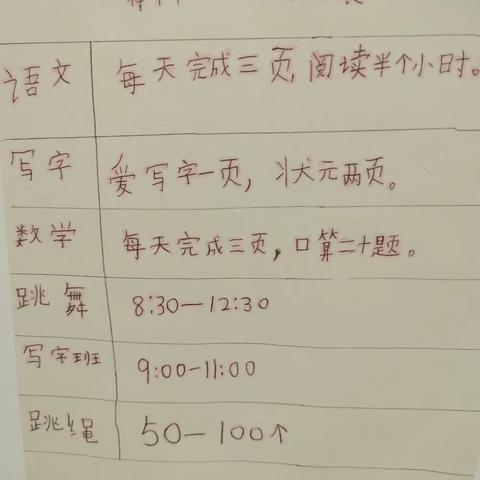 语文 每天完成三页,阅读半个小时。
写字 爱写字一页,状元两页。
数学 每天完成三页,口算二十题。
跳舞 8:30—12:30
写字班 9:00-11:00
跳绳 50—100个